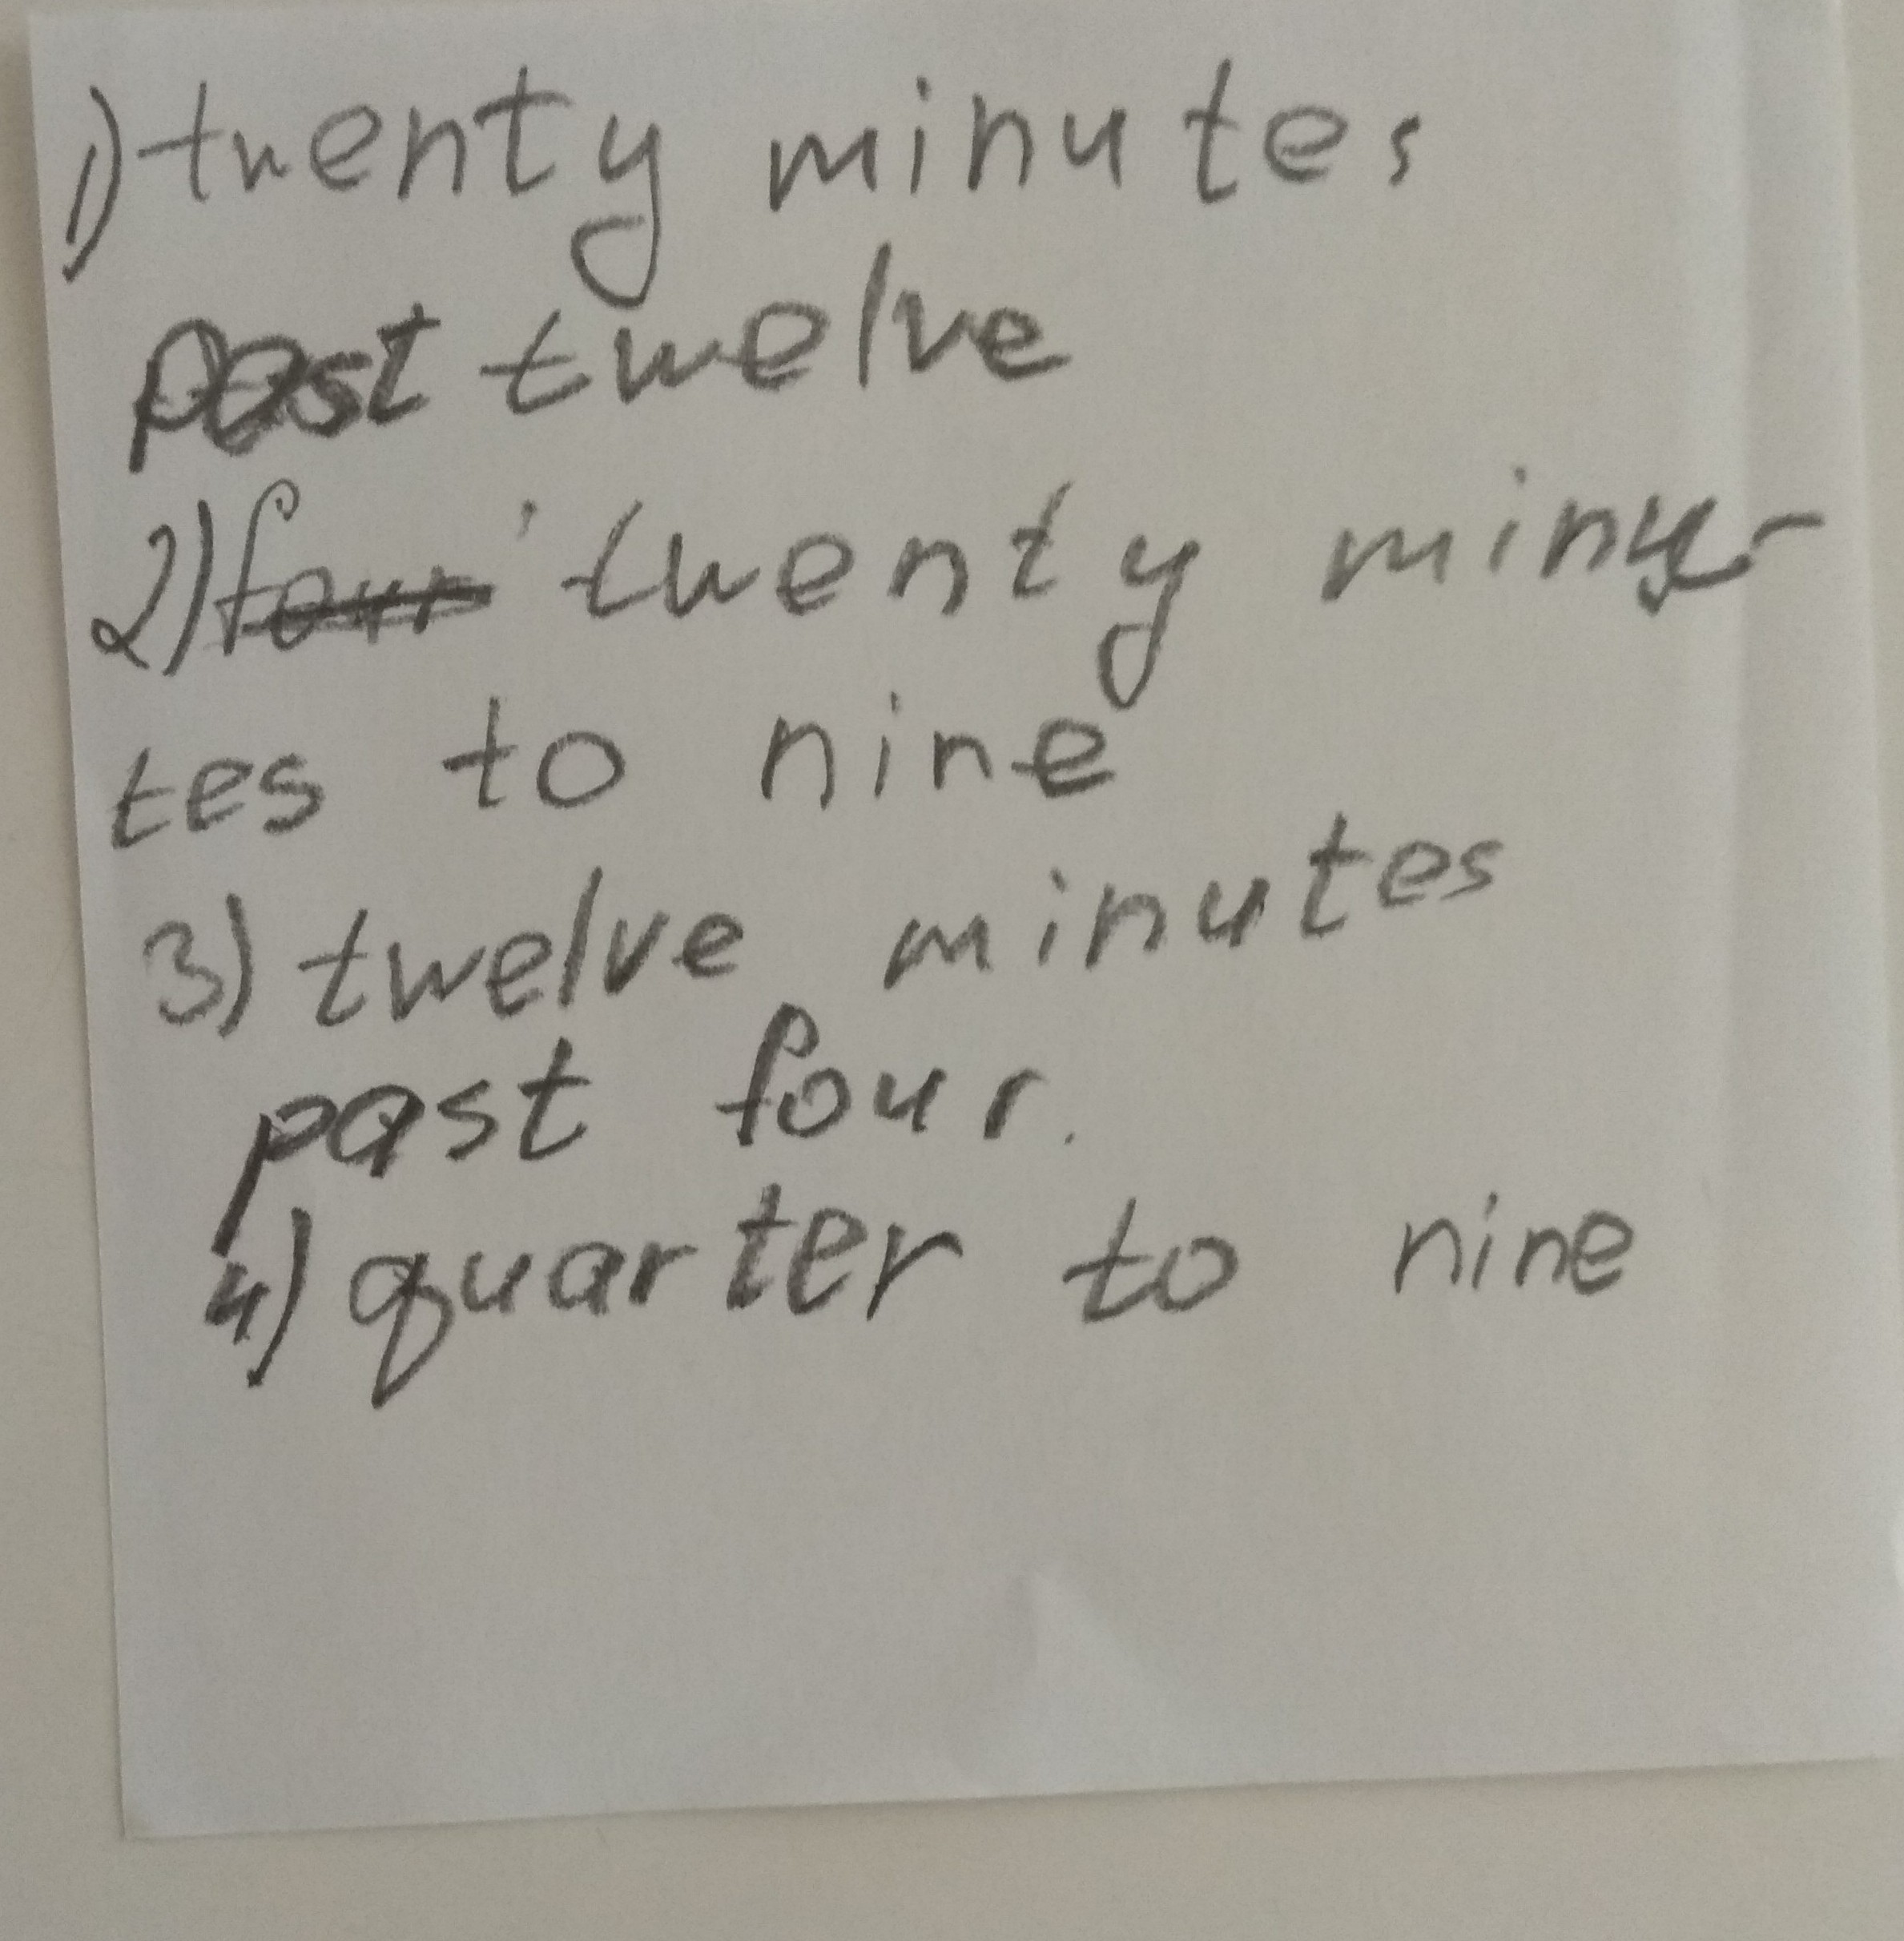 1) twenty minutes
past twelve
2) four twenty minu-
tes to nine
3) twelve minutes
past four.
4) quarter to nine